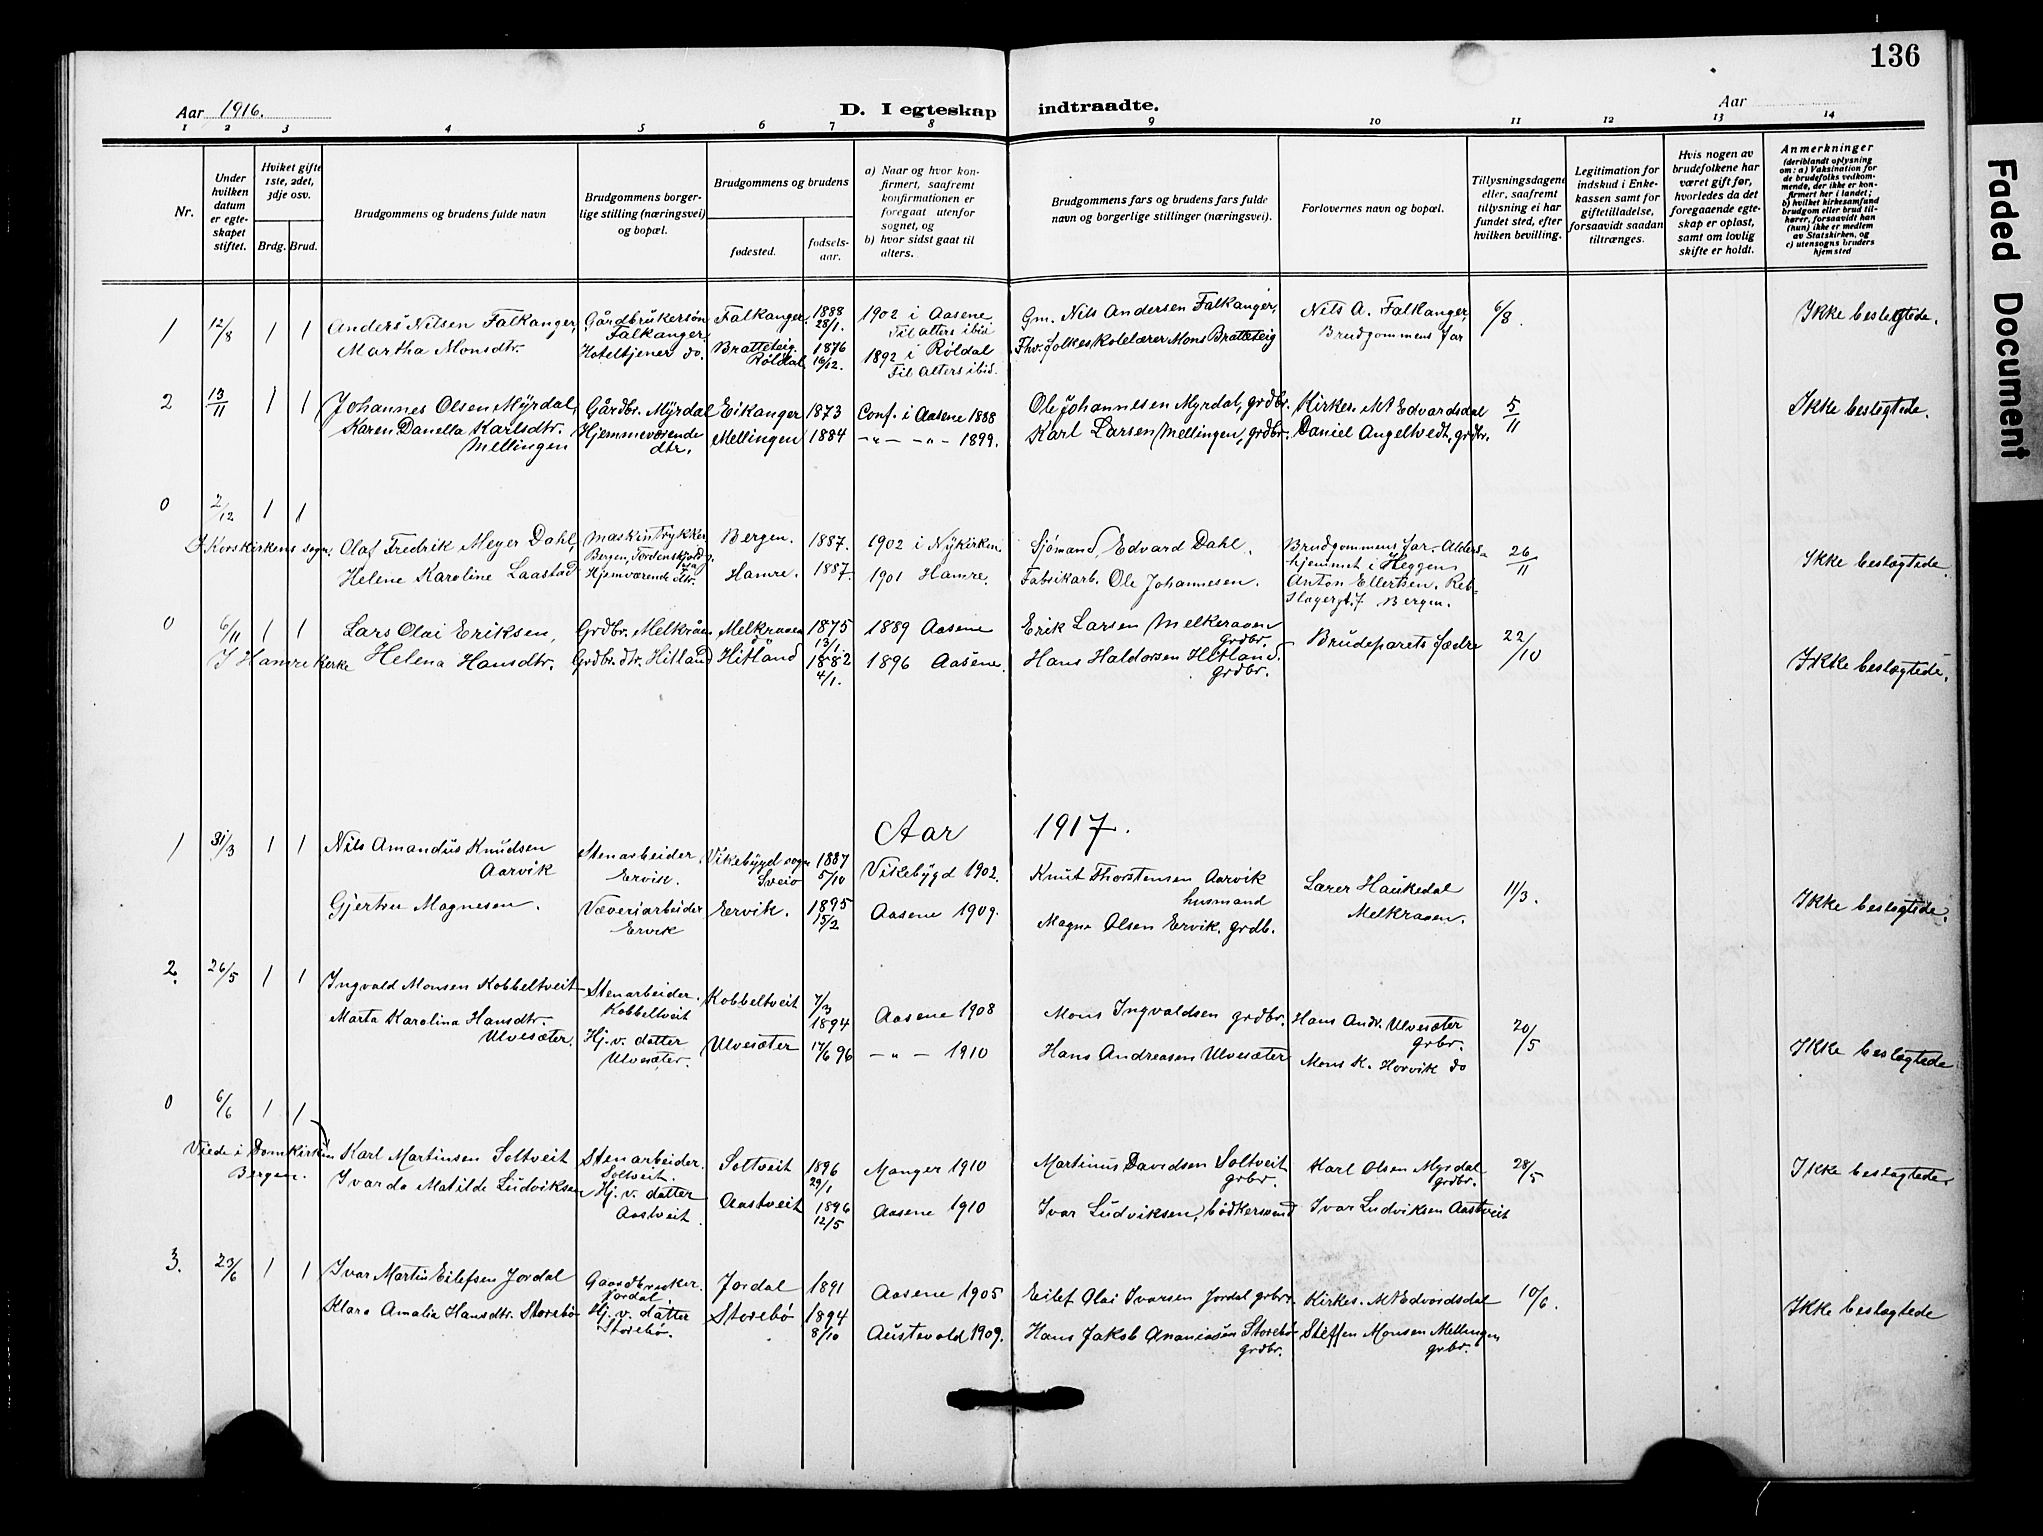 136
Faded Document
Aar 1916.
D. I egteskap indtraadte.
Aar
1 2 3 4 5 6 7 8 9 10 11 12 13 14
Nr.
Under hvilken datum er egteskapet stiftet.
Hviket gifte 1ste, 2det, 3dje osv.
Brdg. Brud.
Brudgommens og brudens fulde navn
Brudgommens borgerlige stilling (næringsvei) og bopæl.
Brudgommens og brudens
fødested.
fødselsaar.
a) Naar og hvor konfirmert, saafremt konfirmationen er foregaat utenfor sognet, og
b) hvor sidst gaat til alters.
Brudgommens fars og brudens fars fulde navn og borgerlige stillinger (næringsvei).
Forlovernes navn og bopæl.
Tillysningsdagene eller, saafremt tillysning ei har fundet sted, efter hvilken bevilling.
Legitimation for indskud i Enkekassen samt for giftetilladelse, forsaavidt saadan tiltrænges.
Hvis nogen av brudefolkene har været gift før, hvorledes da det foregaaende egteskap er opløst, samt om lovlig skifte er holdt.
Anmerkninger (deriblandt oplysning om: a) Vaksination for de brudefolks vedkommende, der ikke er konfirmert her i landet; b) hvilket kirkesamfund brudgom eller brud tilhører, forsaavidt han (hun) ikke er medlem av Statskirken, og c) utensogns bruders hjemsted
1 12/8 1 1 Anders Nilsen Falkanger, Gårdbrukersøn Falkanger. Falkanger. 1888 28/1. 1902 i Aasene Til alters ibid Gm. Nils Andersen Falkanger, Nils A. Falkanger, Brudgommens far 6/8. Ikke beslegtede.
Martha Monsdtr. Hoteltjener do. Bratteteig Røldal 1876 16/12. 1892 i Røldal Til Alters ibid. Fhv. folkeskolelærer Mons Bratteteig
2 13/11 1 1 Johannes Olsen Myrdal, Gårdbr. Myrdal Eikanger 1873 Conf. i Aasene 1888 Ole Johannesen Myrdal, grdbr. Kirkes. M Edvardsdal 5/11 Ikke beslegtede.
Karen Danella Karlsdtr. Mellingen Hjemmeværende dtr. Mellingen 1884 -"- -"- 1899. Karl Larsen Mellingen, grdbr. Daniel Angeltvedt, grdbr.
0 2/12 1 1
I Korskirkens sogn. Olaf Fredrik Meyer Dahl, Maskintrykker Bergen, Bergen. 1887. 1902 i Nykirken. Sjømand Edvard Dahl. Brudgommens far. Aldershjemmet i Heggen 26/11 Ikke beslægtede.
Helene Karoline Laastad Hjemværende dtr. Hamre. 1887. 1901 Hamre. Fabrikarb. Ole Johannesen. Anton Ellertsen. Bergen.
0 6/11 1 1 Lars Olai Eriksen, Grdbr. Melkråen Melkraaen 1875 13/1. 1889 Aasene Erik Larsen Melkeraaen grdbr. Brudeparets fædre 22/10
I Hamre Kirke Helena Hansdtr. Grdbr.dtr. Hitland Hitland 1882 4/1. 1896 Aasene. Hans Haldorsen Hitland. grdbr. Ikke beslægtede.
Aar 1917.
1 31/3 1 1 Nils Amandus Knudsen Aarvik Stenarbeider, Ervik. Vikebygd sogn Sveio 1887 5/10 Vikebygd 1902. Knut Thorstensen Aarvik husmand Lærer Haukedal Melkraaen. 11/3.
Gjertru Magnesen. Væveriarbeider Ervik Eervik. 1895 15/2 Aasene 1909. Magne Olsen Ervik, grdb. Ikke beslegtede.
2. 26/5 1 1 Ingvald Monsen Kobbeltveit Stenarbeider. Kobbeltveit Kobbeltveit 7/3 1894 Aasene 1908 Mons Ingvaldsen grdbr. Hans Andr. Ulvesæter grbr. 20/5
Marta Karolina Hansdtr. Ulvesæter. Hj. v. datter Ulvesæter. Ulvesæter 17/6 96 -"- 1910 Hans Andreasen Ulvesæter Mons K. Horvik do Ikke beslægtede
0 6/6 1 1
Viede i Domkirken Bergen. Karl Martinsen Soltveit Stenarbeider. Soltveit. Soltveit 1896 29/1 Manger 1910 Martinus Davidsen Soltveit grbr. Karl Olsen Myrdal grdbr. 28/5 Ikke beslægtede
Ivarda Matilde Ludviksen Hj. v. datter Aastveit. Aastveit 1896 12/5 Aasene 1910 Ivar Ludviksen, bødkersvend Ivar Ludviksen Aastveit
3. 23/6 1 1 Ivar Martin Eilefsen Jordal Gaardbruker. Jordal. Jordal 1891 Aasene 1905 Eilef Olai Ivarsen Jordal grbr. Kirkes. M Edvardsdal 10/6.
Klara Amalia Hansdtr. Storebø Hj. v. datter Storebø. Storebø 1894 8/10 Austevold 1909. Hans Jakob Ananiasen Storebø grdbr. Steffen Monsen Mellingen grbr. Ikke beslegtede